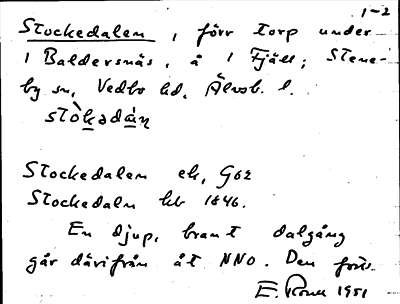 1-2
Stockedalen, förr torp under
1 Baldersnäs, å 1 Fjäll; Stene-
by sn, Vedbo hd, Älvsb. l.
stòkadán
Stockedalen ek, G62
Stockedaln kb 1846.
En djup, brant dalgång
går därifrån åt NNO. Den forts.
E. 1951